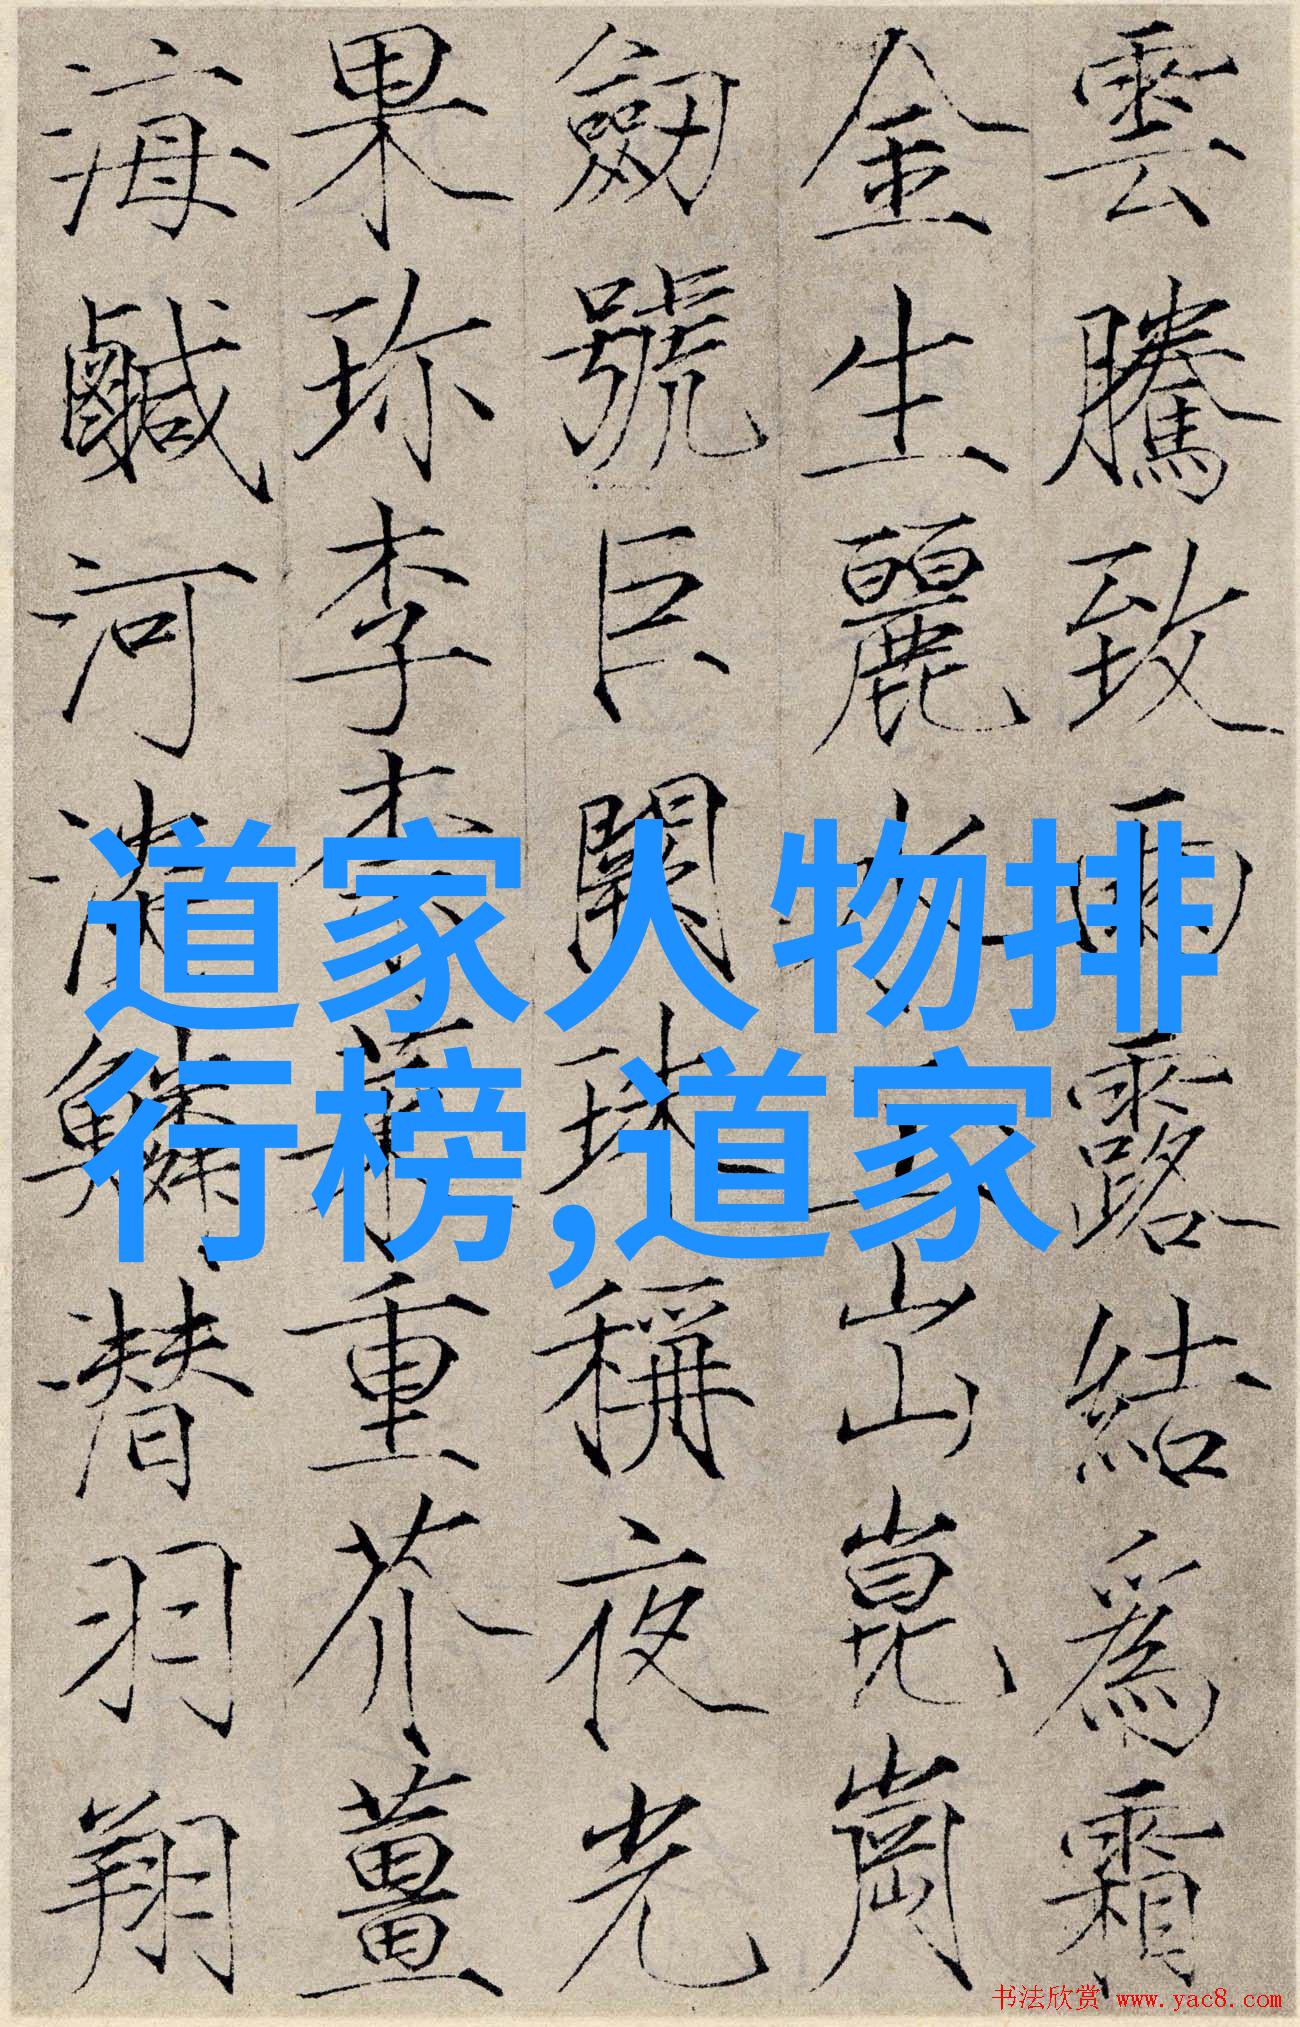 雲騰致雨露結爲霜
金生麗水出崑崗
劔號巨闕珠稱夜光
果珎李柰菜重芥薑
海鹹河淡鱗潜羽翔
道家人物排
行榜,道家
书法欣赏 www.yac8.com